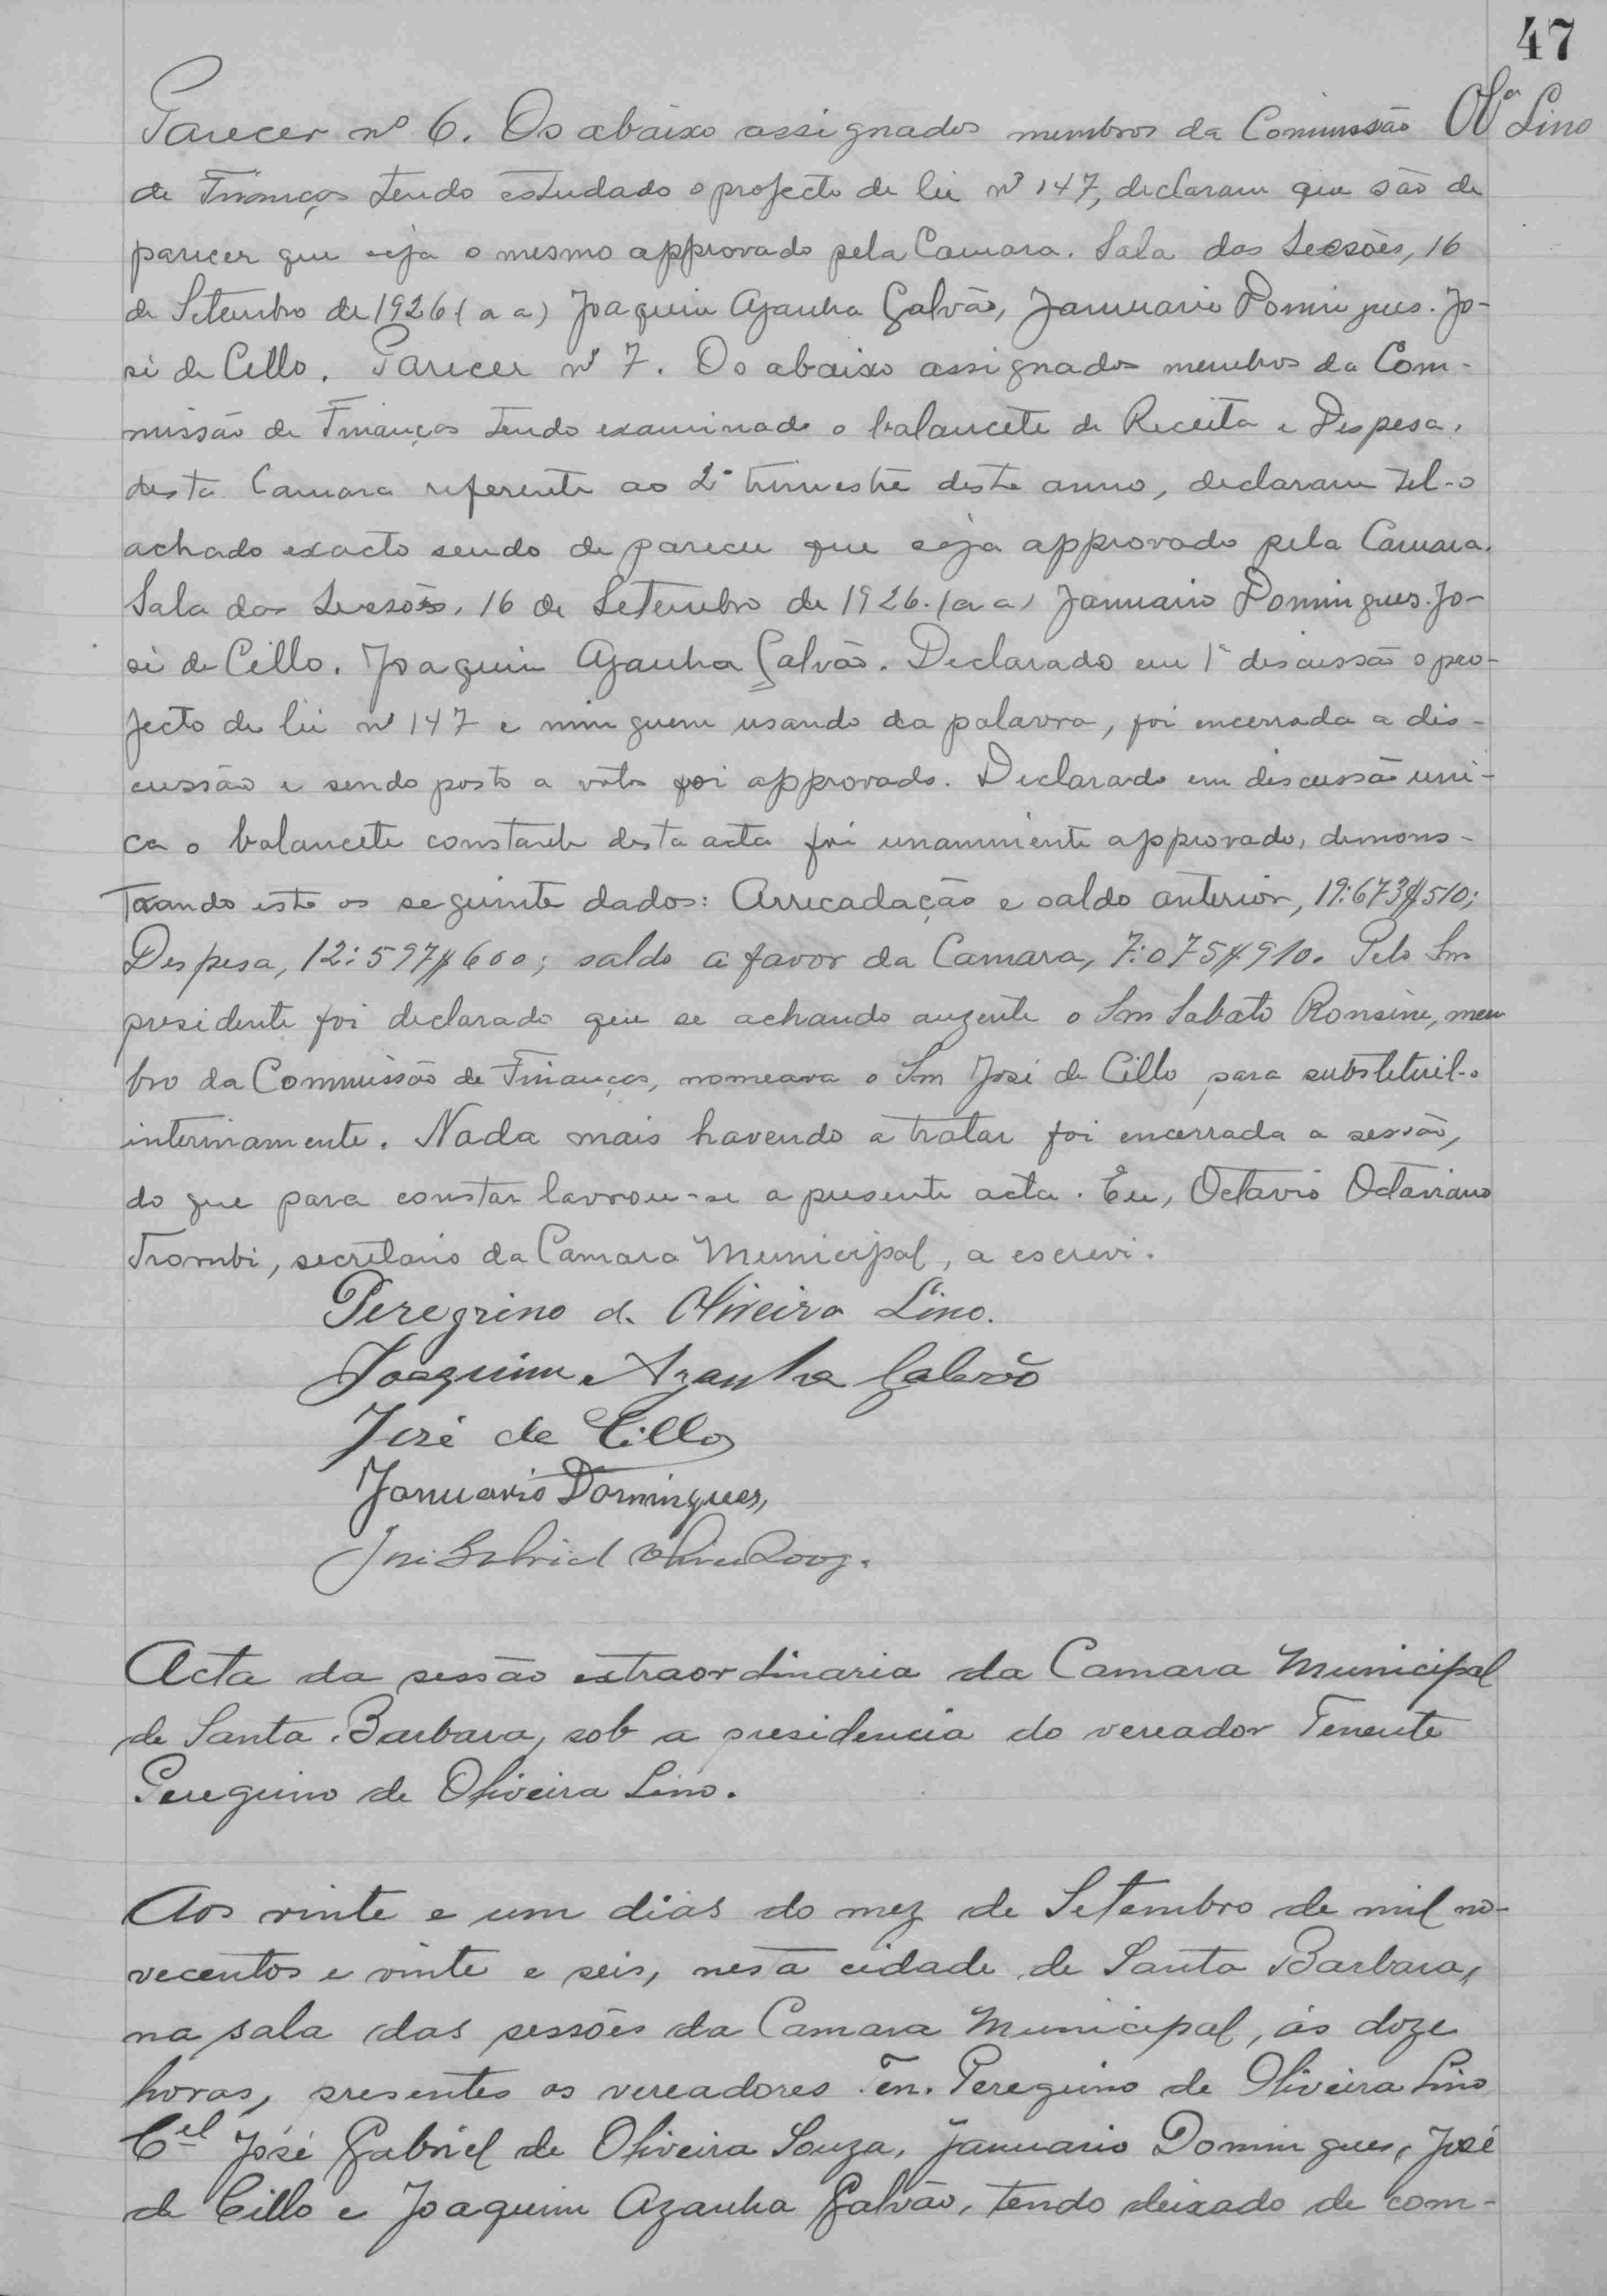 47
Olª Lino
Parecer nº 6. Os abaixo assignados membros da Comissão
de Finanças tendo estudado o projecto de lei nº 147, declaram que são de
parecer que seja o mesmo approvado pela Camara. Sala das Sessões, 16
de Setembro de 1926 (a a) Joaquim Azanha Galvão, Januario Domingues. Jo-
sé de Cillo. Parecer nº 7. Os abaixo assignados membros da Com-
missão de Finanças tendo examinado o balancete de Receita e Despesa,
desta Camara referente ao 2º trimestre deste anno, declaram tel-o
achado exacto sendo de parecer que seja approvado pela Camara.
Sala das Sessões, 16 de Setembro de 1926. (a a) Januario Domingues. Jo-
sé de Cillo. Joaquim Azanha Galvão. Declarado em 1ª discussão o pro-
jecto de lei nº 147 e ninguem usando da palavra, foi encerrada a dis-
cussão e sendo posto a votos foi approvado. Declarado em discussão uni-
ca o balancete constante desta acta foi unanimente approvado, demons-
trando este os seguinte dados: Arrecadação e saldo anterior, 19:673$510;
Despesa, 12:597$600; saldo a favor da Camara, 7:075$910. Pelo Snr
presidente foi declarado que se achando auzente o Snr Sabato Ronsini, mem
bro da Commissão de Finanças, nomeava o Snr José de Cillo para substituil-o
interinamente. Nada mais havendo a tratar foi encerrada a sessão,
do que para constar lavrou-se a presente acta. Eu, Octavio Octaviano
Trombi, secretario da Camara Municipal, a escrevi.
Peregrino d. Oliveira Lino.
Joaquim Azanha Galvão
José de Cillo
Januario Domingues,
José Gabriel Oliveira Souza.
Acta da sessão extraordinaria da Camara Municipal
de Santa Barbara, sob a presidencia do vereador Tenente
Peregrino de Oliveira Lino.
Aos vinte e um dias do mez de Setembro de mil no-
vecentos e vinte e seis, nesta cidade de Santa Barbara,
na sala das sessões da Camara Municipal, ás doze
horas, presentes os vereadores Ten. Peregrino de Oliveira Lino
Cel José Gabriel de Oliveira Souza, Januario Domingues, José
de Cillo e Joaquim Azanha Galvão, tendo deixado de com-